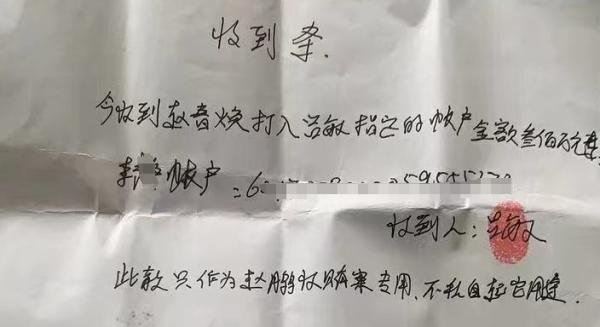 收到条.
今收到赵春焕打入吕敏指定的帐户金额叁佰万元整
李 帐户:6
收到人:吕敏
此款只作为赵鹏 贿案专用,不私自起它用途.